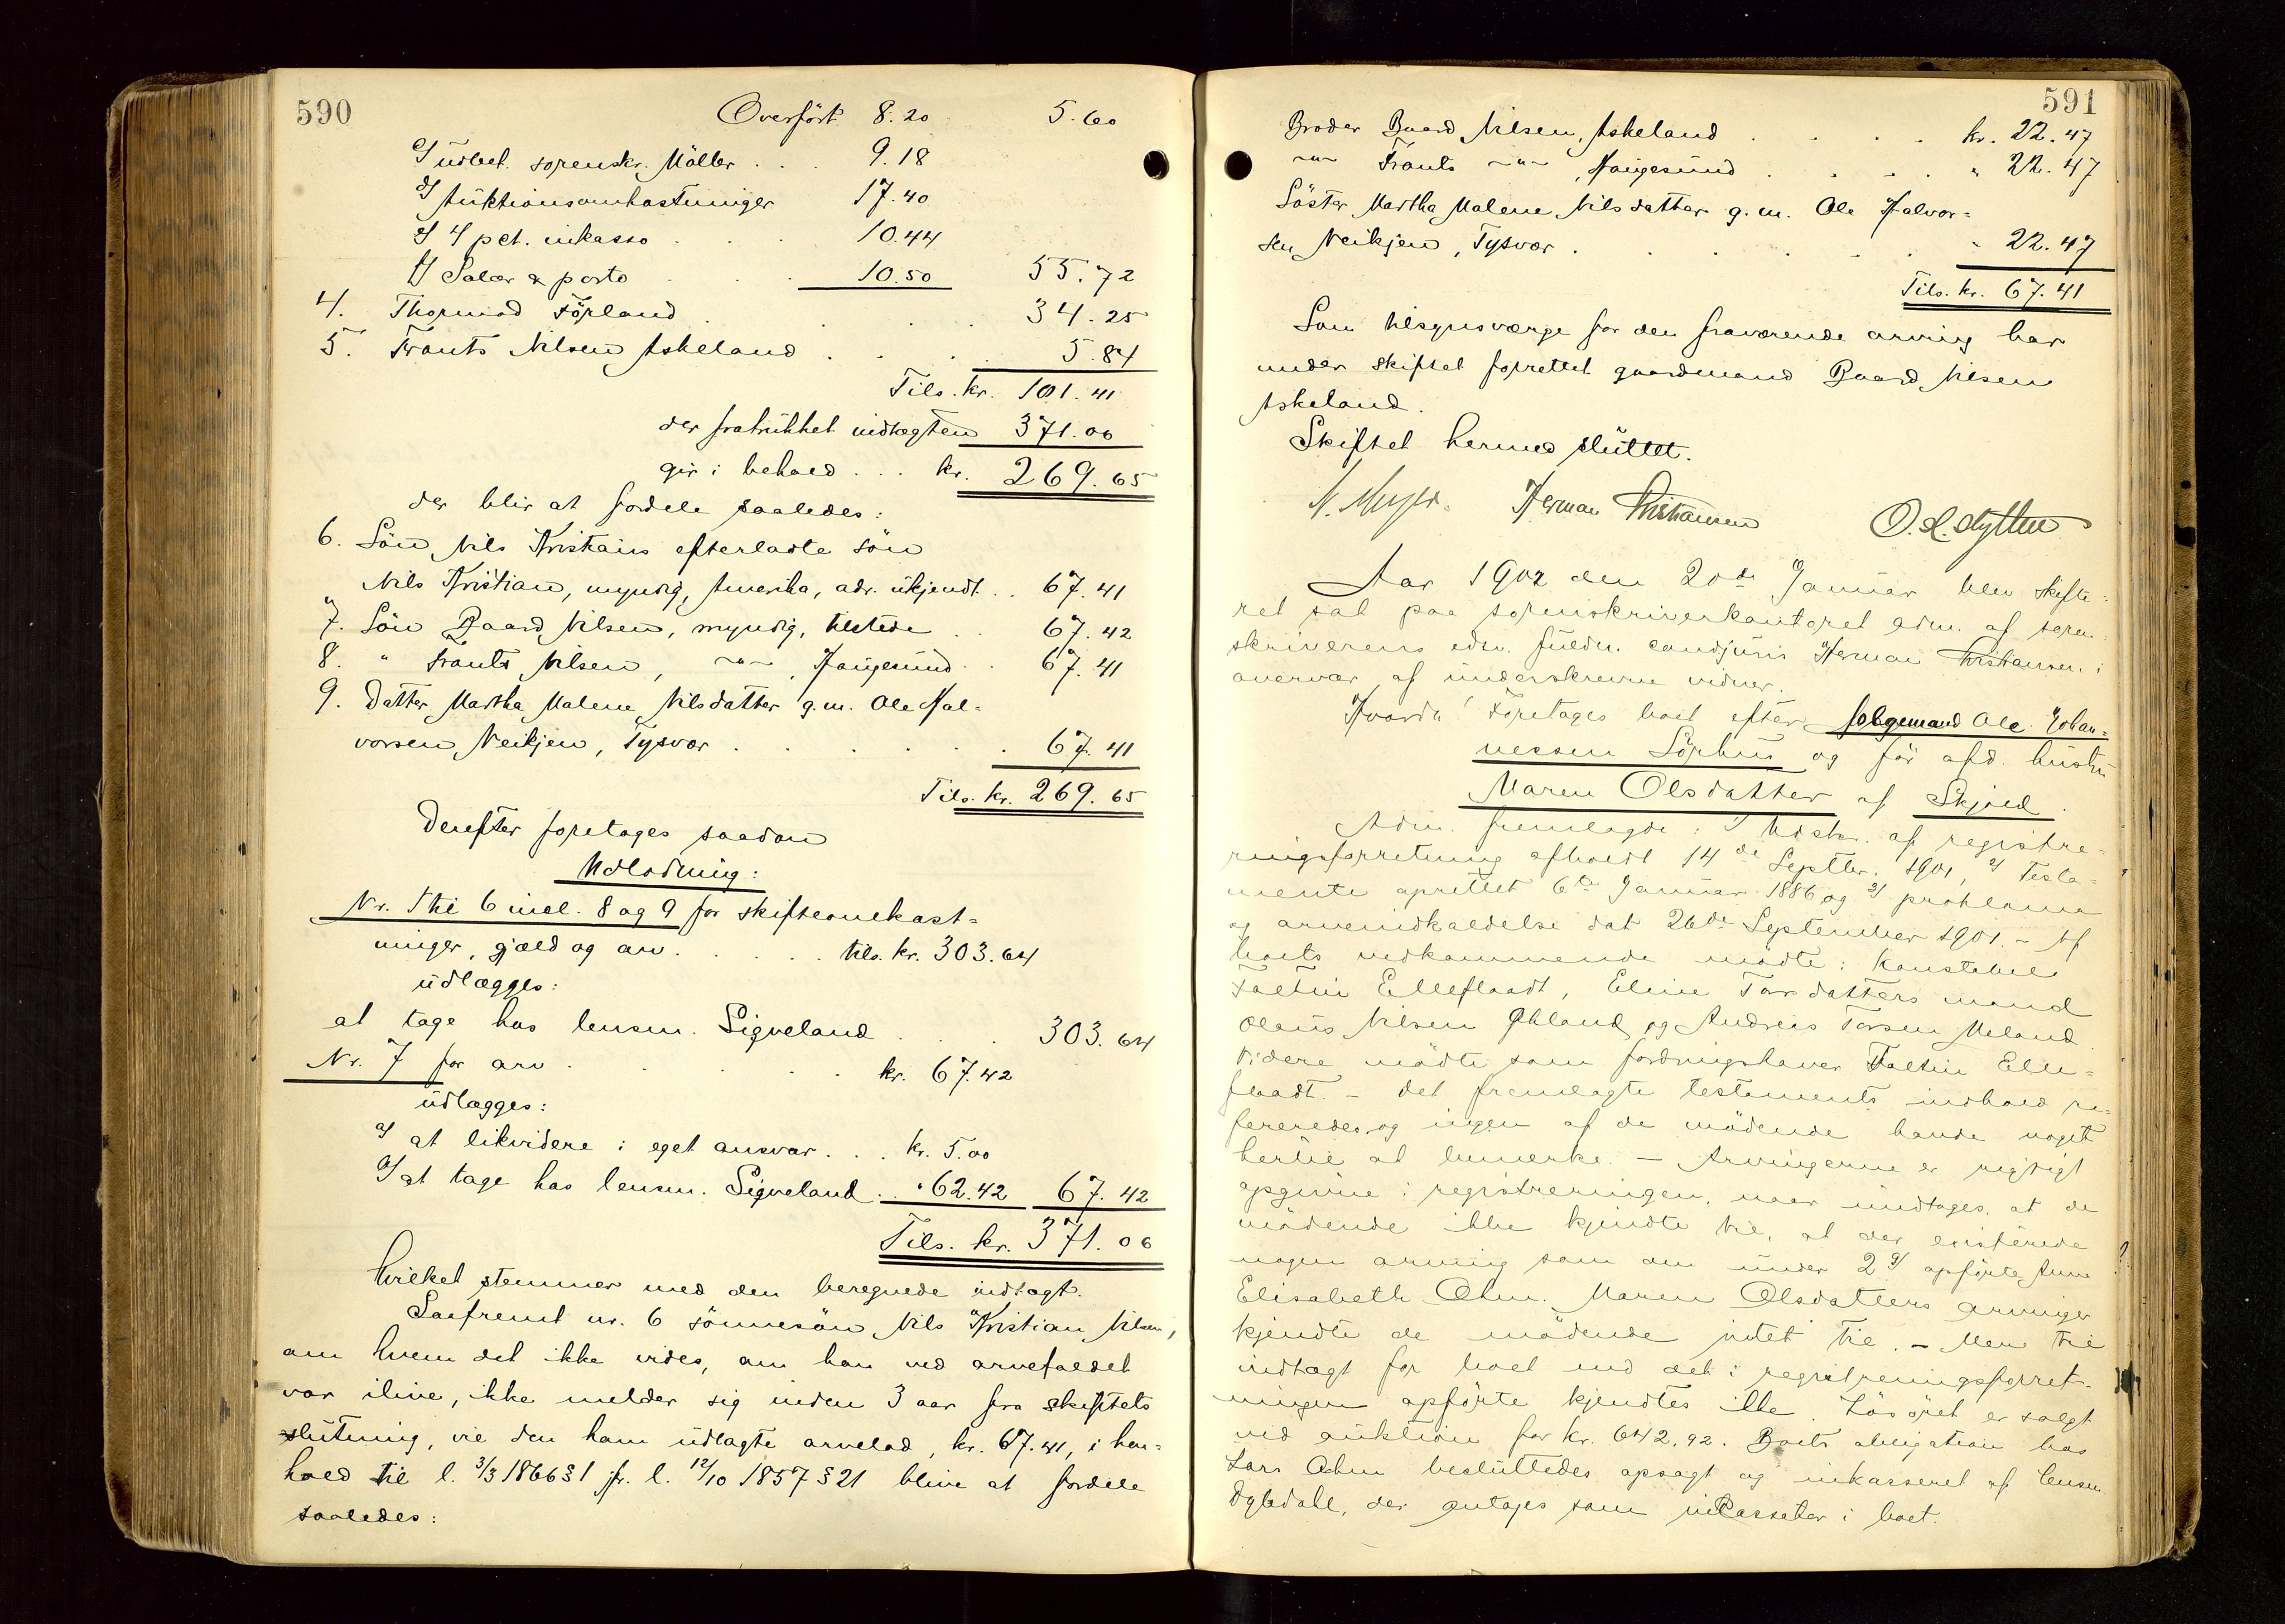 590
Overført 8.20 5.60
c/ udbet. sorenskr. Möller . . . 9.18
d/ Auktionsomkostninger 17.40
e/ 4 pct. inkasso . . . 10.44
f/ Salær & porto . . 10.50 55.72
4. Thormod Førland . . . . 34.25
5. Frants Nilsen Askeland . . . . 5.84
Tils. kr. 101.41
der fratrukket indtægten 371.06
gir i behold . . . kr. 269.65
der blir at fordele saaledes:
6. Sön Nils Kristians efterladte sön
Nils Kristian, myndig, Amerika, adr. ukjendt . . 67.41
7. Sön Baard Nilsen, myndig, tilstede . . 67.42
8. " Frants Nilsen, -"-, Haugesund . . 67.41
9. Datter Martha Malene Nilsdatter g.m. Ole Hal-
vorsen Neikjen, Tysvær . . . . . . 67.41
Tils. kr. 269.65
Derefter foretages saadan
Udlodning:
Nr. 1 til 6 incl. 8 og 9 for skifteomkost-
ninger, gjæld og arv . . . . . tils. kr. 303.64
udlægges:
at tage hos lensm. Sigveland . . . 303.64
Nr. 7 for arv . . . . . . kr. 67.42
udlægges:
a/ at likvidere i eget ansvar . . . kr. 5.00
b/ at tage hos lensm. Sigveland . . " 62.42 67.42
Tils. kr. 371.06
hvilket stemmer med den beregnede indtægt.
Saafremt nr. 6 sönnesön Nils Kristian Nilsen,
om hvem det ikke vides, om han ved arvefaldet
var ilive, ikke melder sig inden 3 aar fra skiftets
slutning, vil den ham udlagte arvelod, kr. 67.41, i hen-
hold til l. 3/3 1866 § 1 jfr. l. 12/10 1857 § 21 blive at fordele
saaledes:
591
Broder Baard Nilsen, Askeland . . . . kr. 22.47
-"- Frants -"-, Haugesund . . . . " 22.47
Söster Martha Malene Nilsdatter g.m. Ole Halvor-
sen Neikjen, Tysvær . . . . . . " 22.47
Tils. kr. 67.41
Som tilsynsværge for den fraværende arving har
under skiftet forrettet gaardmand Baard Nilsen
Askeland.
Skiftet hermed sluttet.
N. Meyer. Herman Christiansen O. H. Dytten
Aar 1902 den 20de Januar blev skifte-
ret sat paa sorenskriverkontoret adm. af soren-
skriverens edsv. fuldm. cand juris Herman Christiansen i
overvær af underskrevne vidner.
Hvorda: Foretages boet efter folgemand Ole Johan-
nessen Sörhus og för afd. hustru
Maren Olsdatter af Skjold.
Adm. fremlagde: 1/ Udskr. af registre-
ringsforretning afholdt 14de Septbr. 1901, 2/ Testa-
mente oprettet 6te Januar 1886 og 3/ proklama
og arveindkaldelse dat 26de September 1901. - Af
boets vedkommende mödte: Konstabel
Faltin Elleflaadt, Eline Torsdatters mand
Olaus Nilsen Øhland og Andreas Torsen Meland.
Videre mödte som fordringshaver Faltin Elle-
flaadt. - Det fremlagte testaments indhold re-
fereredes og ingen af de mödende havde noget
hertil at bemerke. - Arvingerne er rigtigt
opgivne i registreringen, naar undtages at de
mödende ikke kjendte til, at der existerede
nogen arving som den under 2 g/ opförte Anne
Elisabeth Ohm. Maren Olsdatters arvinger
kjendte de mödende intet til. - Mere til
indtægt for boet end det i registreringsforret-
ningen opförte kjendtes ikke. Lösöret er solgt
ved auktion for kr. 642,92. Boets obligation hos
Lars Ohm besluttedes opsagt og inkasseret af lensm.
Dybdahl, der antages som inkassator i boet.